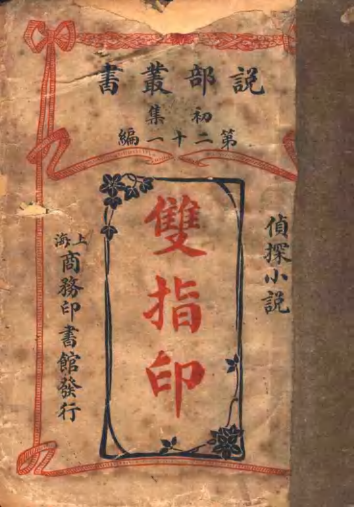 説部叢書
初集
第二十一編
偵探小説
雙指印
上海
商務印書館發行